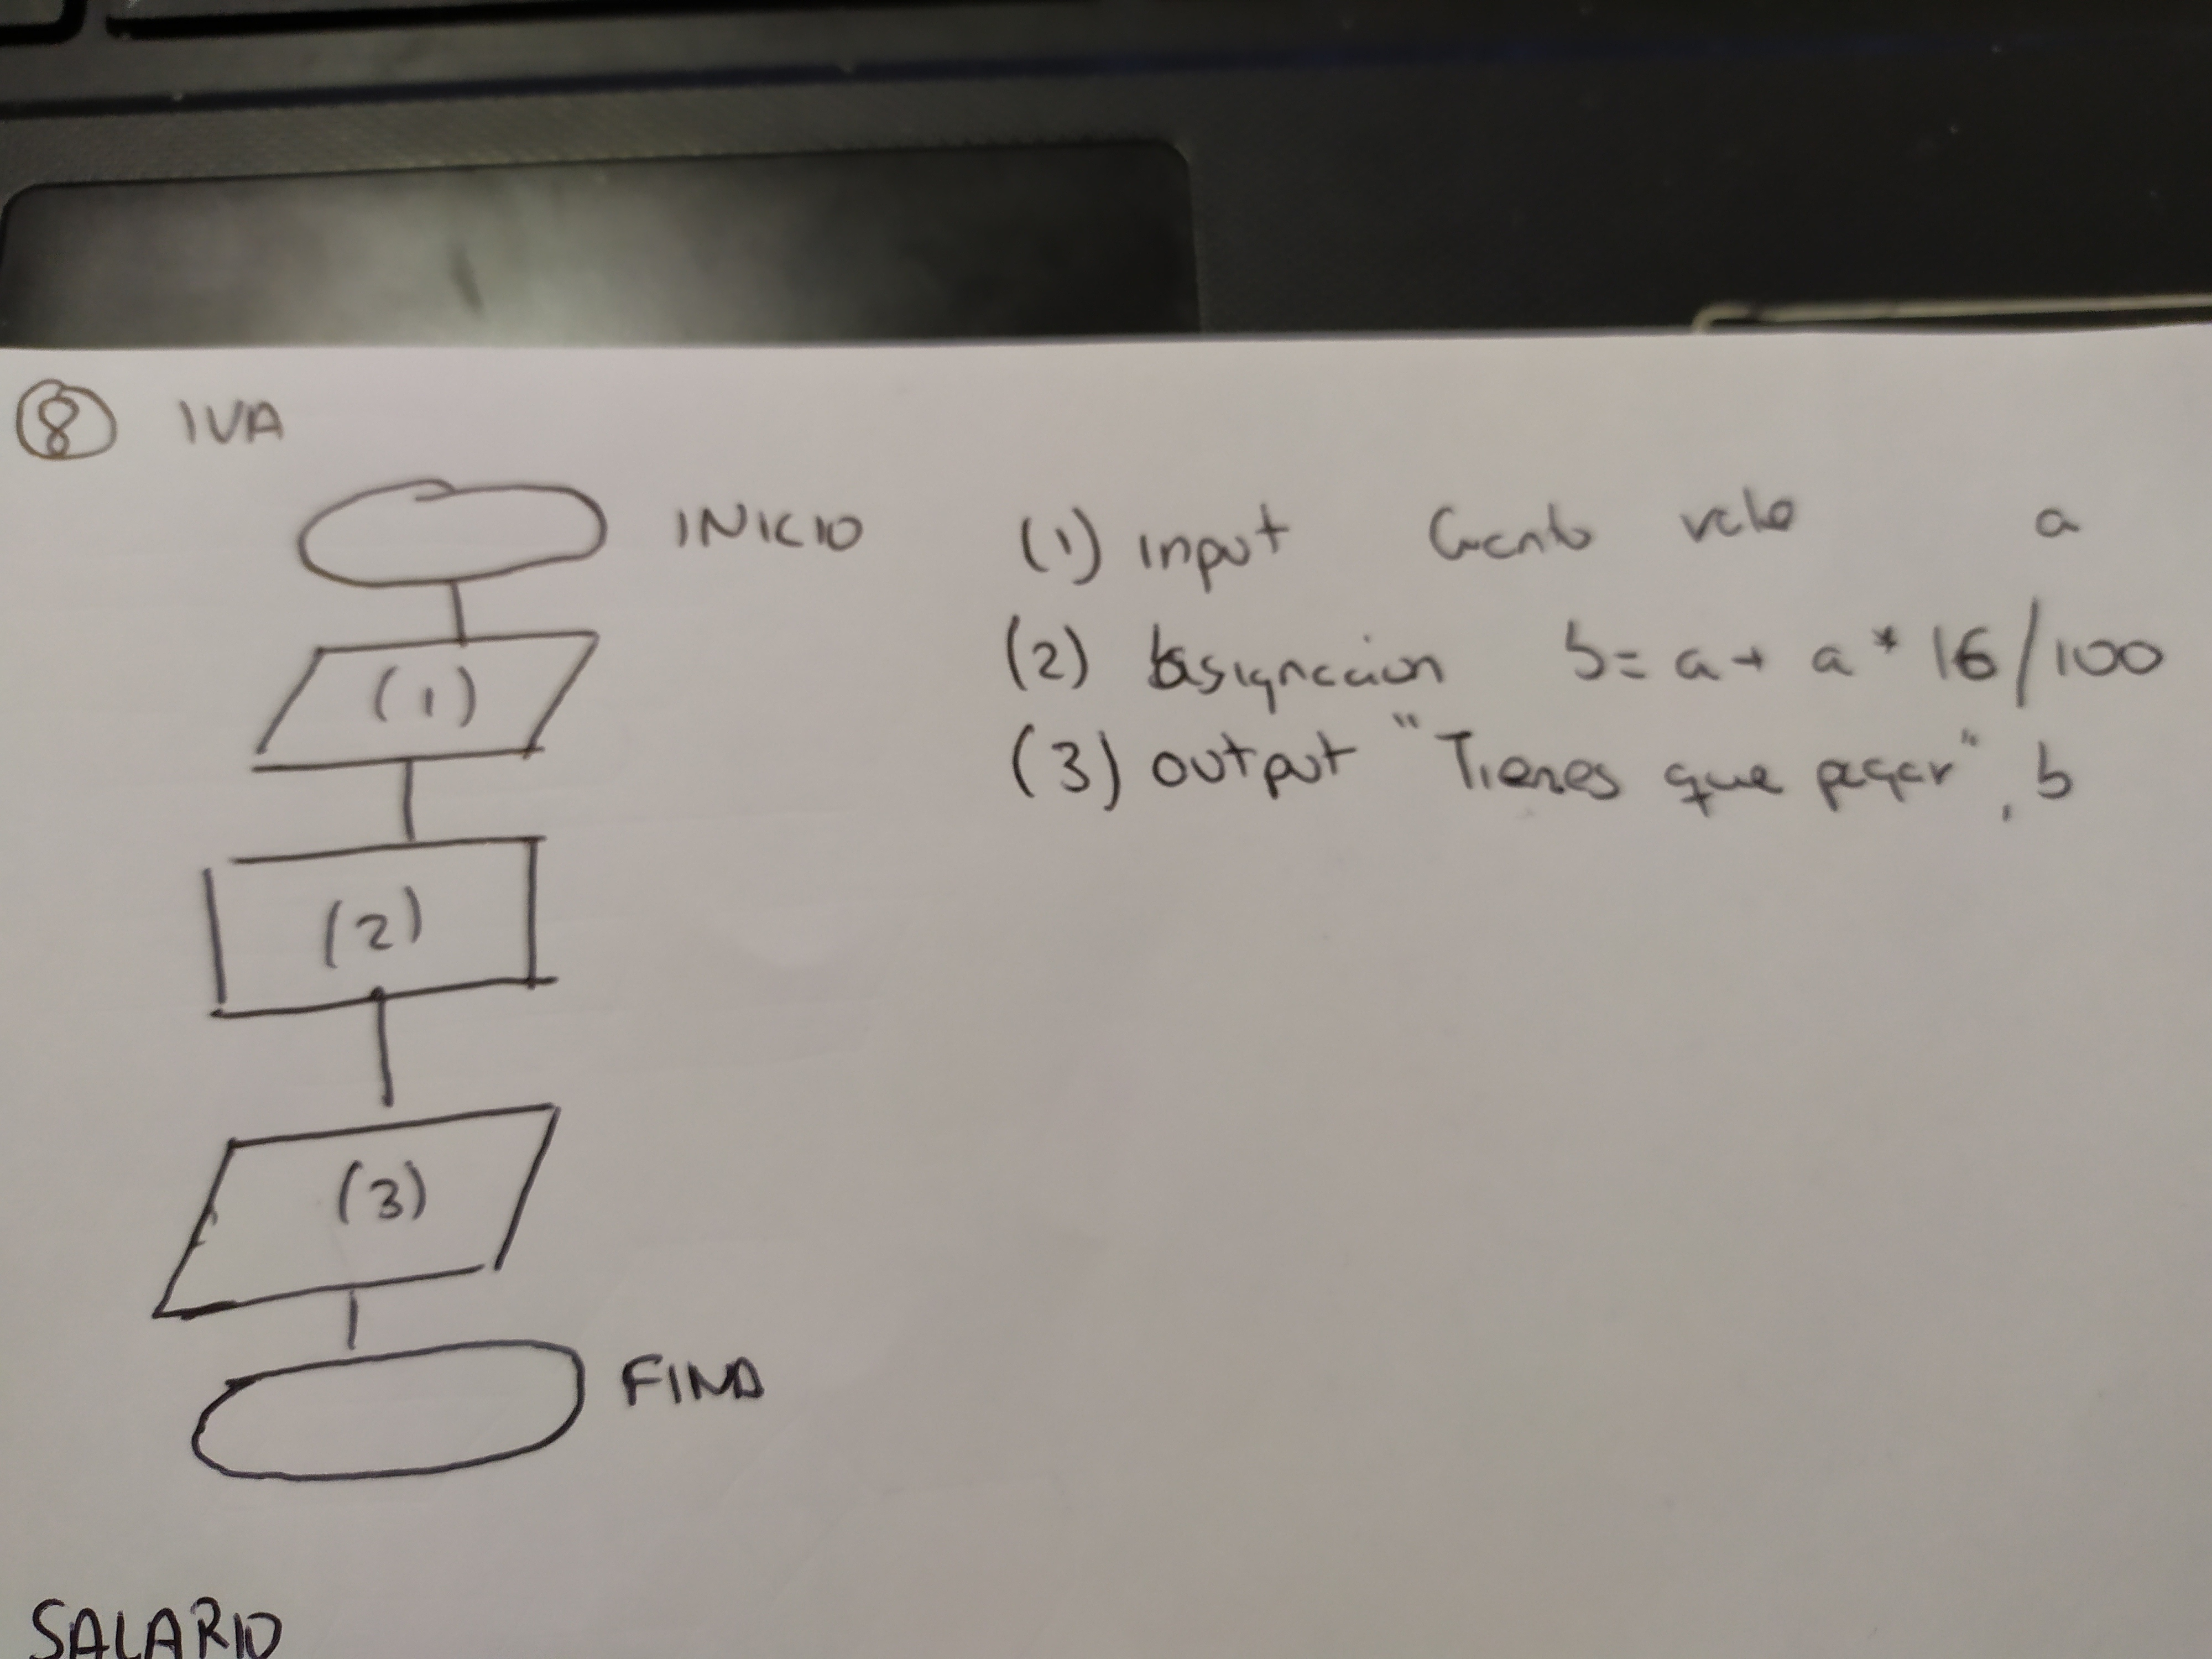 8 IVA
INICIO
(1) input Cuanto vale a
(2) asignacion b = a + a * 16/100
(3) output "Tienes que pagar", b
(1)
(2)
(3)
FIN
SALARIO